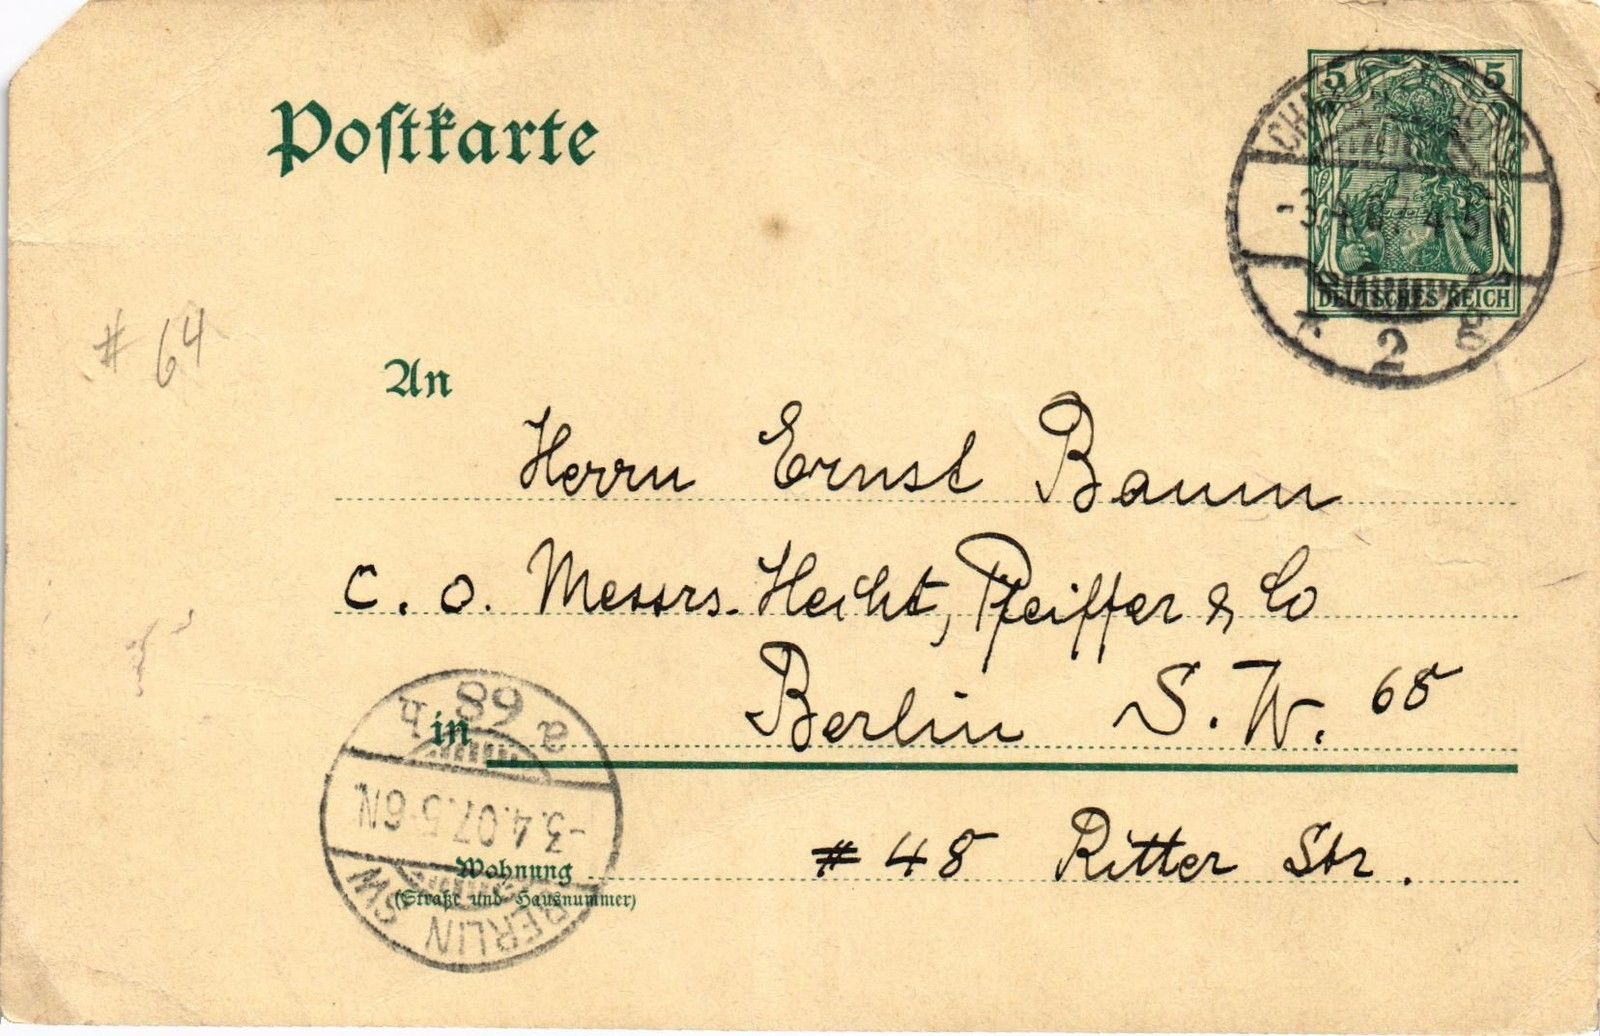 Postkarte
5 5
-3.4.07. 4-5N
DEUTSCHES REICH
* 2 g
# 64
An
Herrn Ernst Baum
c. o. Messrs. Hecht, Pfeiffer & Co
in Berlin S. W. 68
# 48 Ritter Str.
Wohnung
(Straße und Hausnummer)
BERLIN SW
-3.4.07. 5-6N.
a 68 h